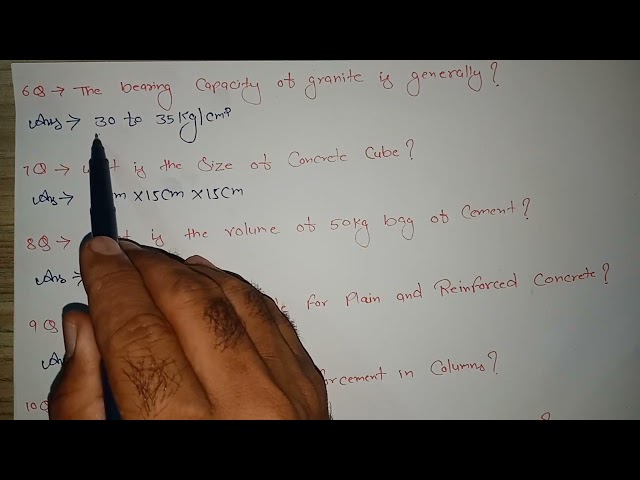 6Q → The bearing Capacity of granite is generally?
Ans → 30 to 35kg/cm²
7Q → is the Size of Concrete Cube?
Ans → m X15cm X15cm
8Q → is the volume of 50kg bag of Cement?
Ans →
9Q for Plain and Reinforced Concrete?
Ans
10Q in Columns?